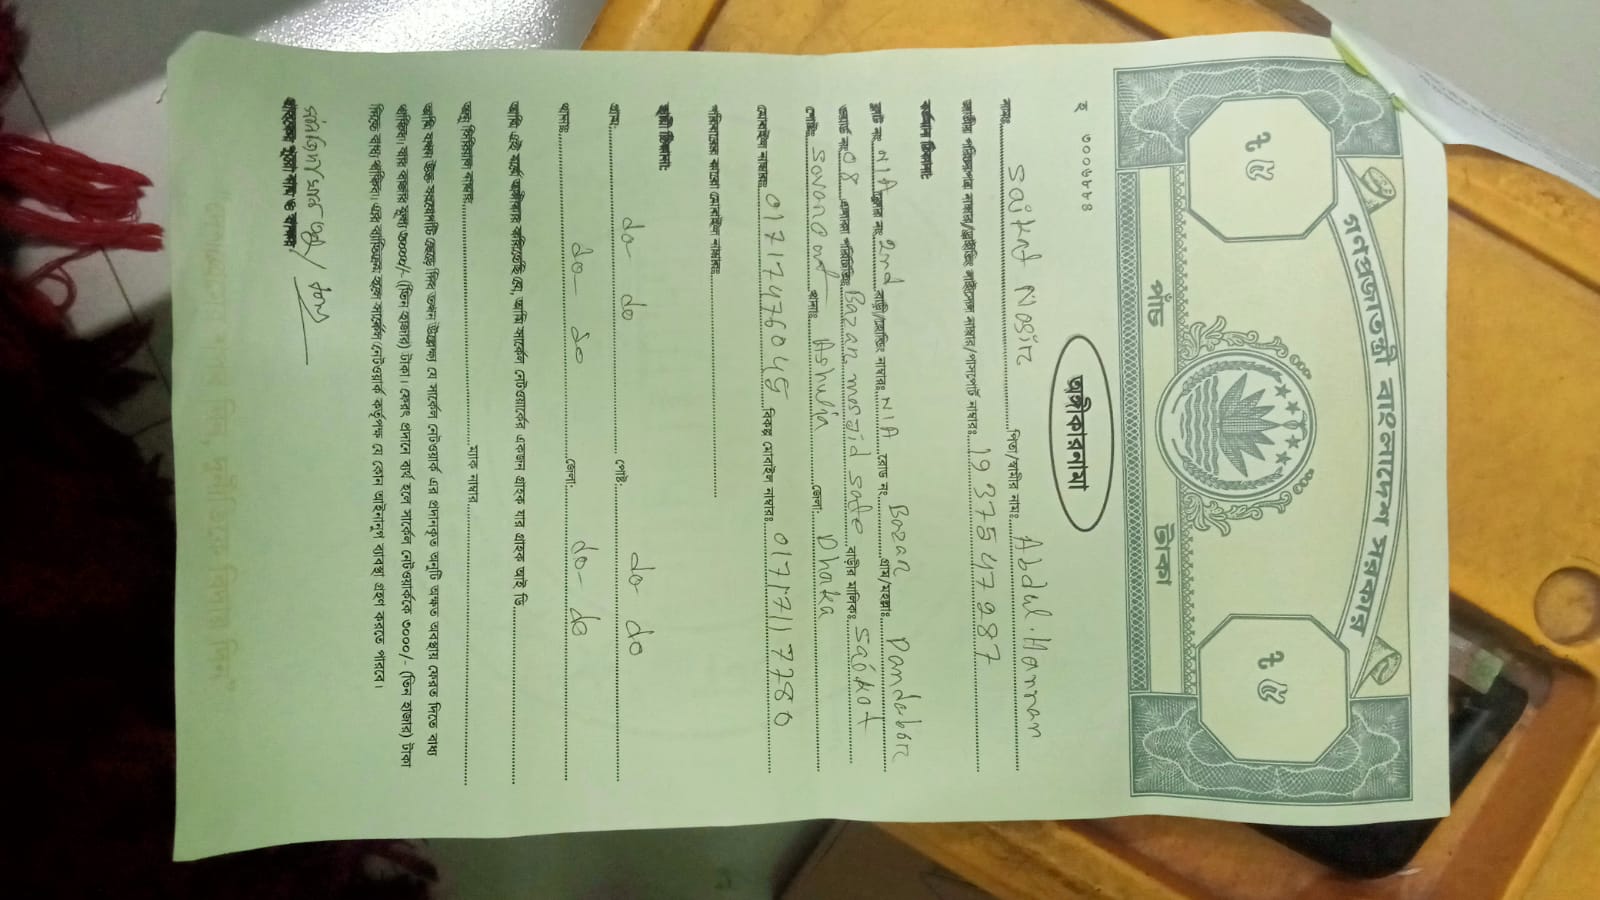 গনপ্রজাতন্ত্রী বাংলাদেশ সরকার
৳ ৫
৳ ৫
পাঁচ টাকা
হ ৩০০৬৮৮৪
অঙ্গীকারনামা
নামঃ saikat Nasir পিতা/স্বামীর নাম: Abdul. Hannan
জাতীয় পরিচয়পত্র নাম্বার/ড্রাইভিং লাইসেন্স নাম্বার/পাসপোর্ট নাম্বারঃ 19 375 47 287
বর্তমান ঠিকানা:
ফ্লাট নং N/A ফ্লোর নং 2nd বাড়ী/হোল্ডিং নাম্বারঃ N/A রোড নং Bazar গ্রাম/মহল্লাঃ
ওয়ার্ড নং 08 এলাকা পরিচিতিঃ Bazar mosjid বাড়ীর মালিকঃ Saikat
পোষ্টঃ থানাঃ Ashulia জেলা: Dhaka
মোবাইল নাম্বারঃ 01717476045 বিকল্প মোবাইল নাম্বারঃ 01717117780
পরিবারের কারো মোবাইল নাম্বারঃ
স্থায়ী ঠিকানা:
গ্রাম: do- do পোষ্ট: do- do
থানাঃ do- do জেলা: do- do
আমি এই মর্মে অঙ্গীকার করিতেছি যে, আমি সার্কেল নেটওয়ার্কের একজন গ্রাহক যার গ্রাহক আই ডি
অনু সিরিয়াল নাম্বার: ম্যাক নাম্বার
আমি যখন উক্ত সংযোগটি ছেড়ে দিব তখন উল্লেখ্য যে সার্কেল নেটওয়ার্ক এর প্রদানকৃত অনুটি অক্ষত অবস্থায় ফেরত দিতে বাধ্য
থাকিব। যার বাজার মূল্য ৩০০০/- (তিন হাজার) টাকা। ফেরৎ প্রদানে ব্যর্থ হলে সার্কেল নেটওয়ার্ককে ৩০০০/- (তিন হাজার) টাকা
দিতে বাধ্য থাকিব। এর ব্যতিক্রম হলে সার্কেল নেটওয়ার্ক কর্তৃপক্ষ যে কোন আইনানুগ ব্যবস্থা গ্রহণ করতে পারবে।
গ্রাহকের পুরো নাম ও স্বাক্ষর